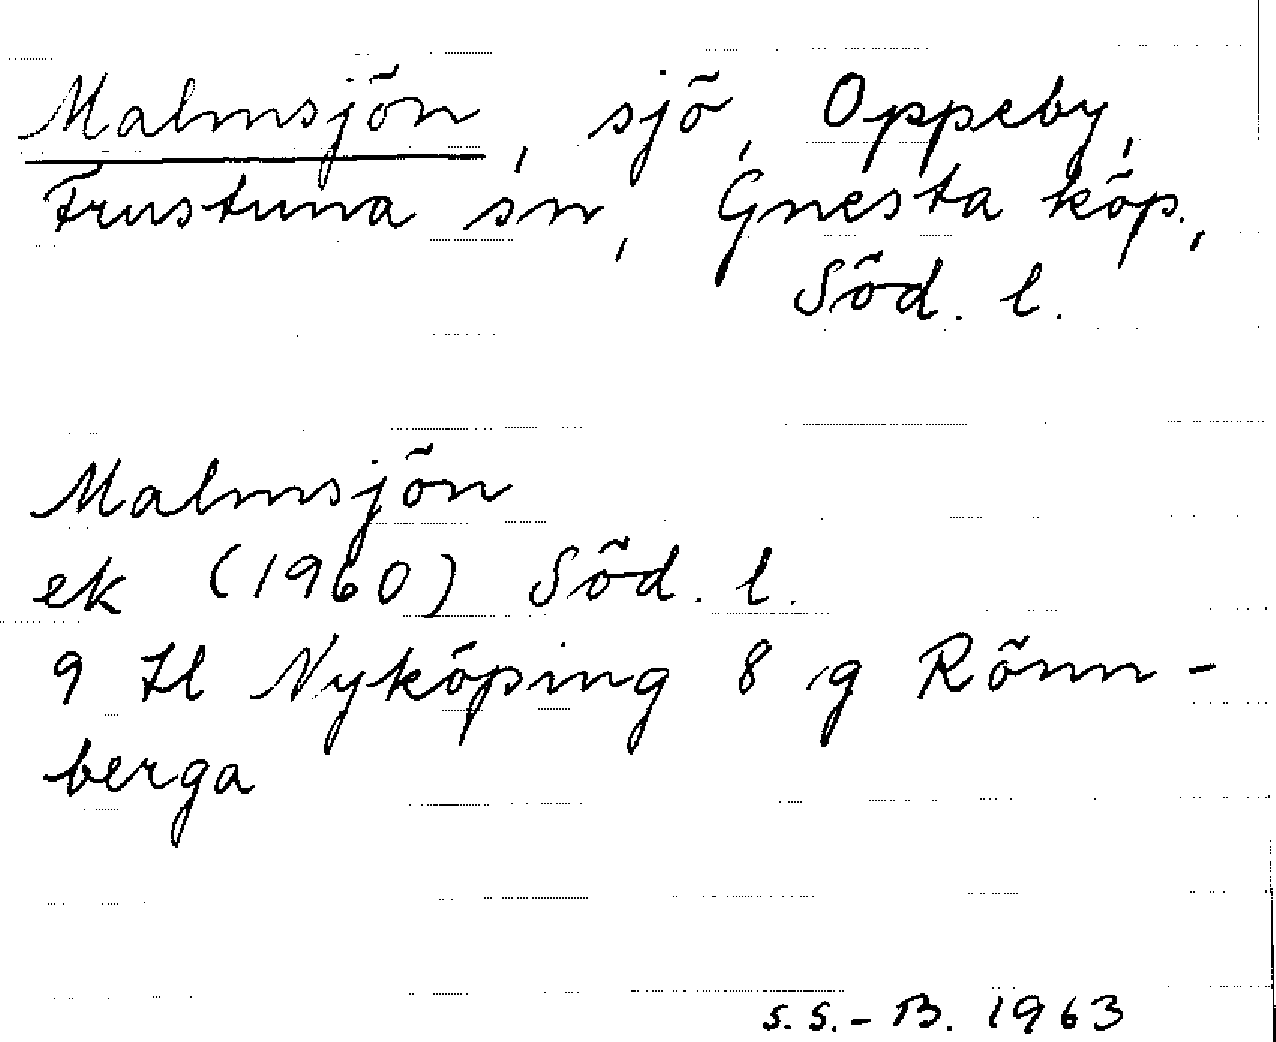 Malmsjön, sjö, Oppeby,
Frustuna sn, Gnesta köp.,
Söd. l.
Malmsjön
ek (1960) Söd. l.
9 H Nyköping 8 g Rönn-
berga
S.S.-B. 1963